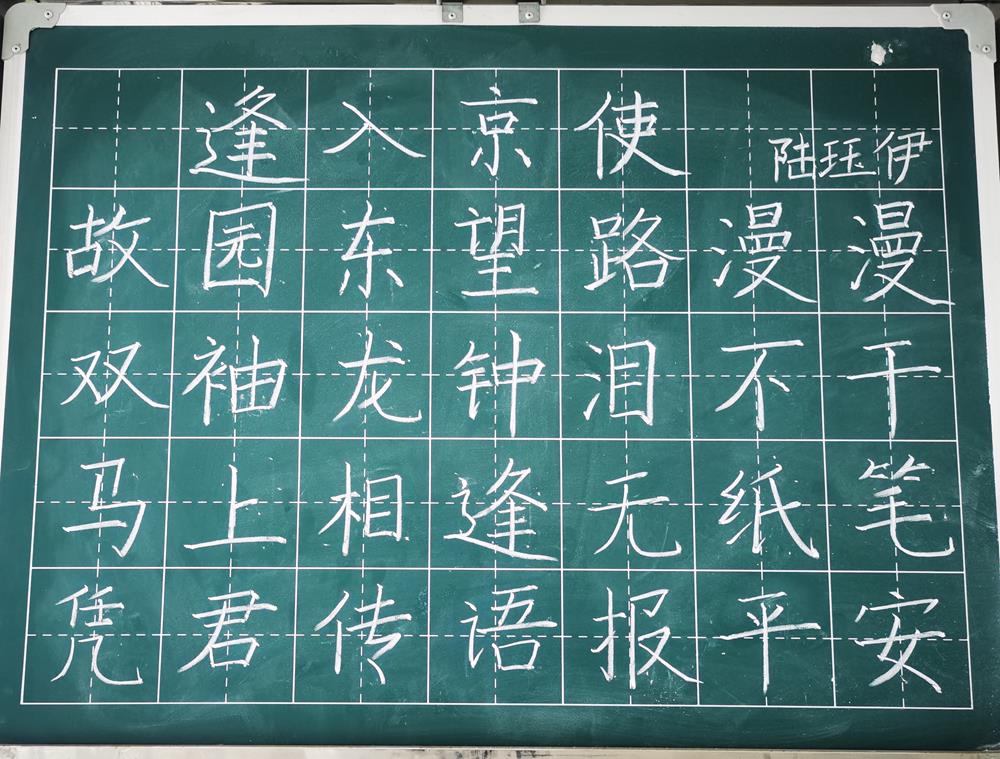 逢入京使
陆珏伊
故园东望路漫漫
双袖龙钟泪不干
马上相逢无纸笔
凭君传语报平安